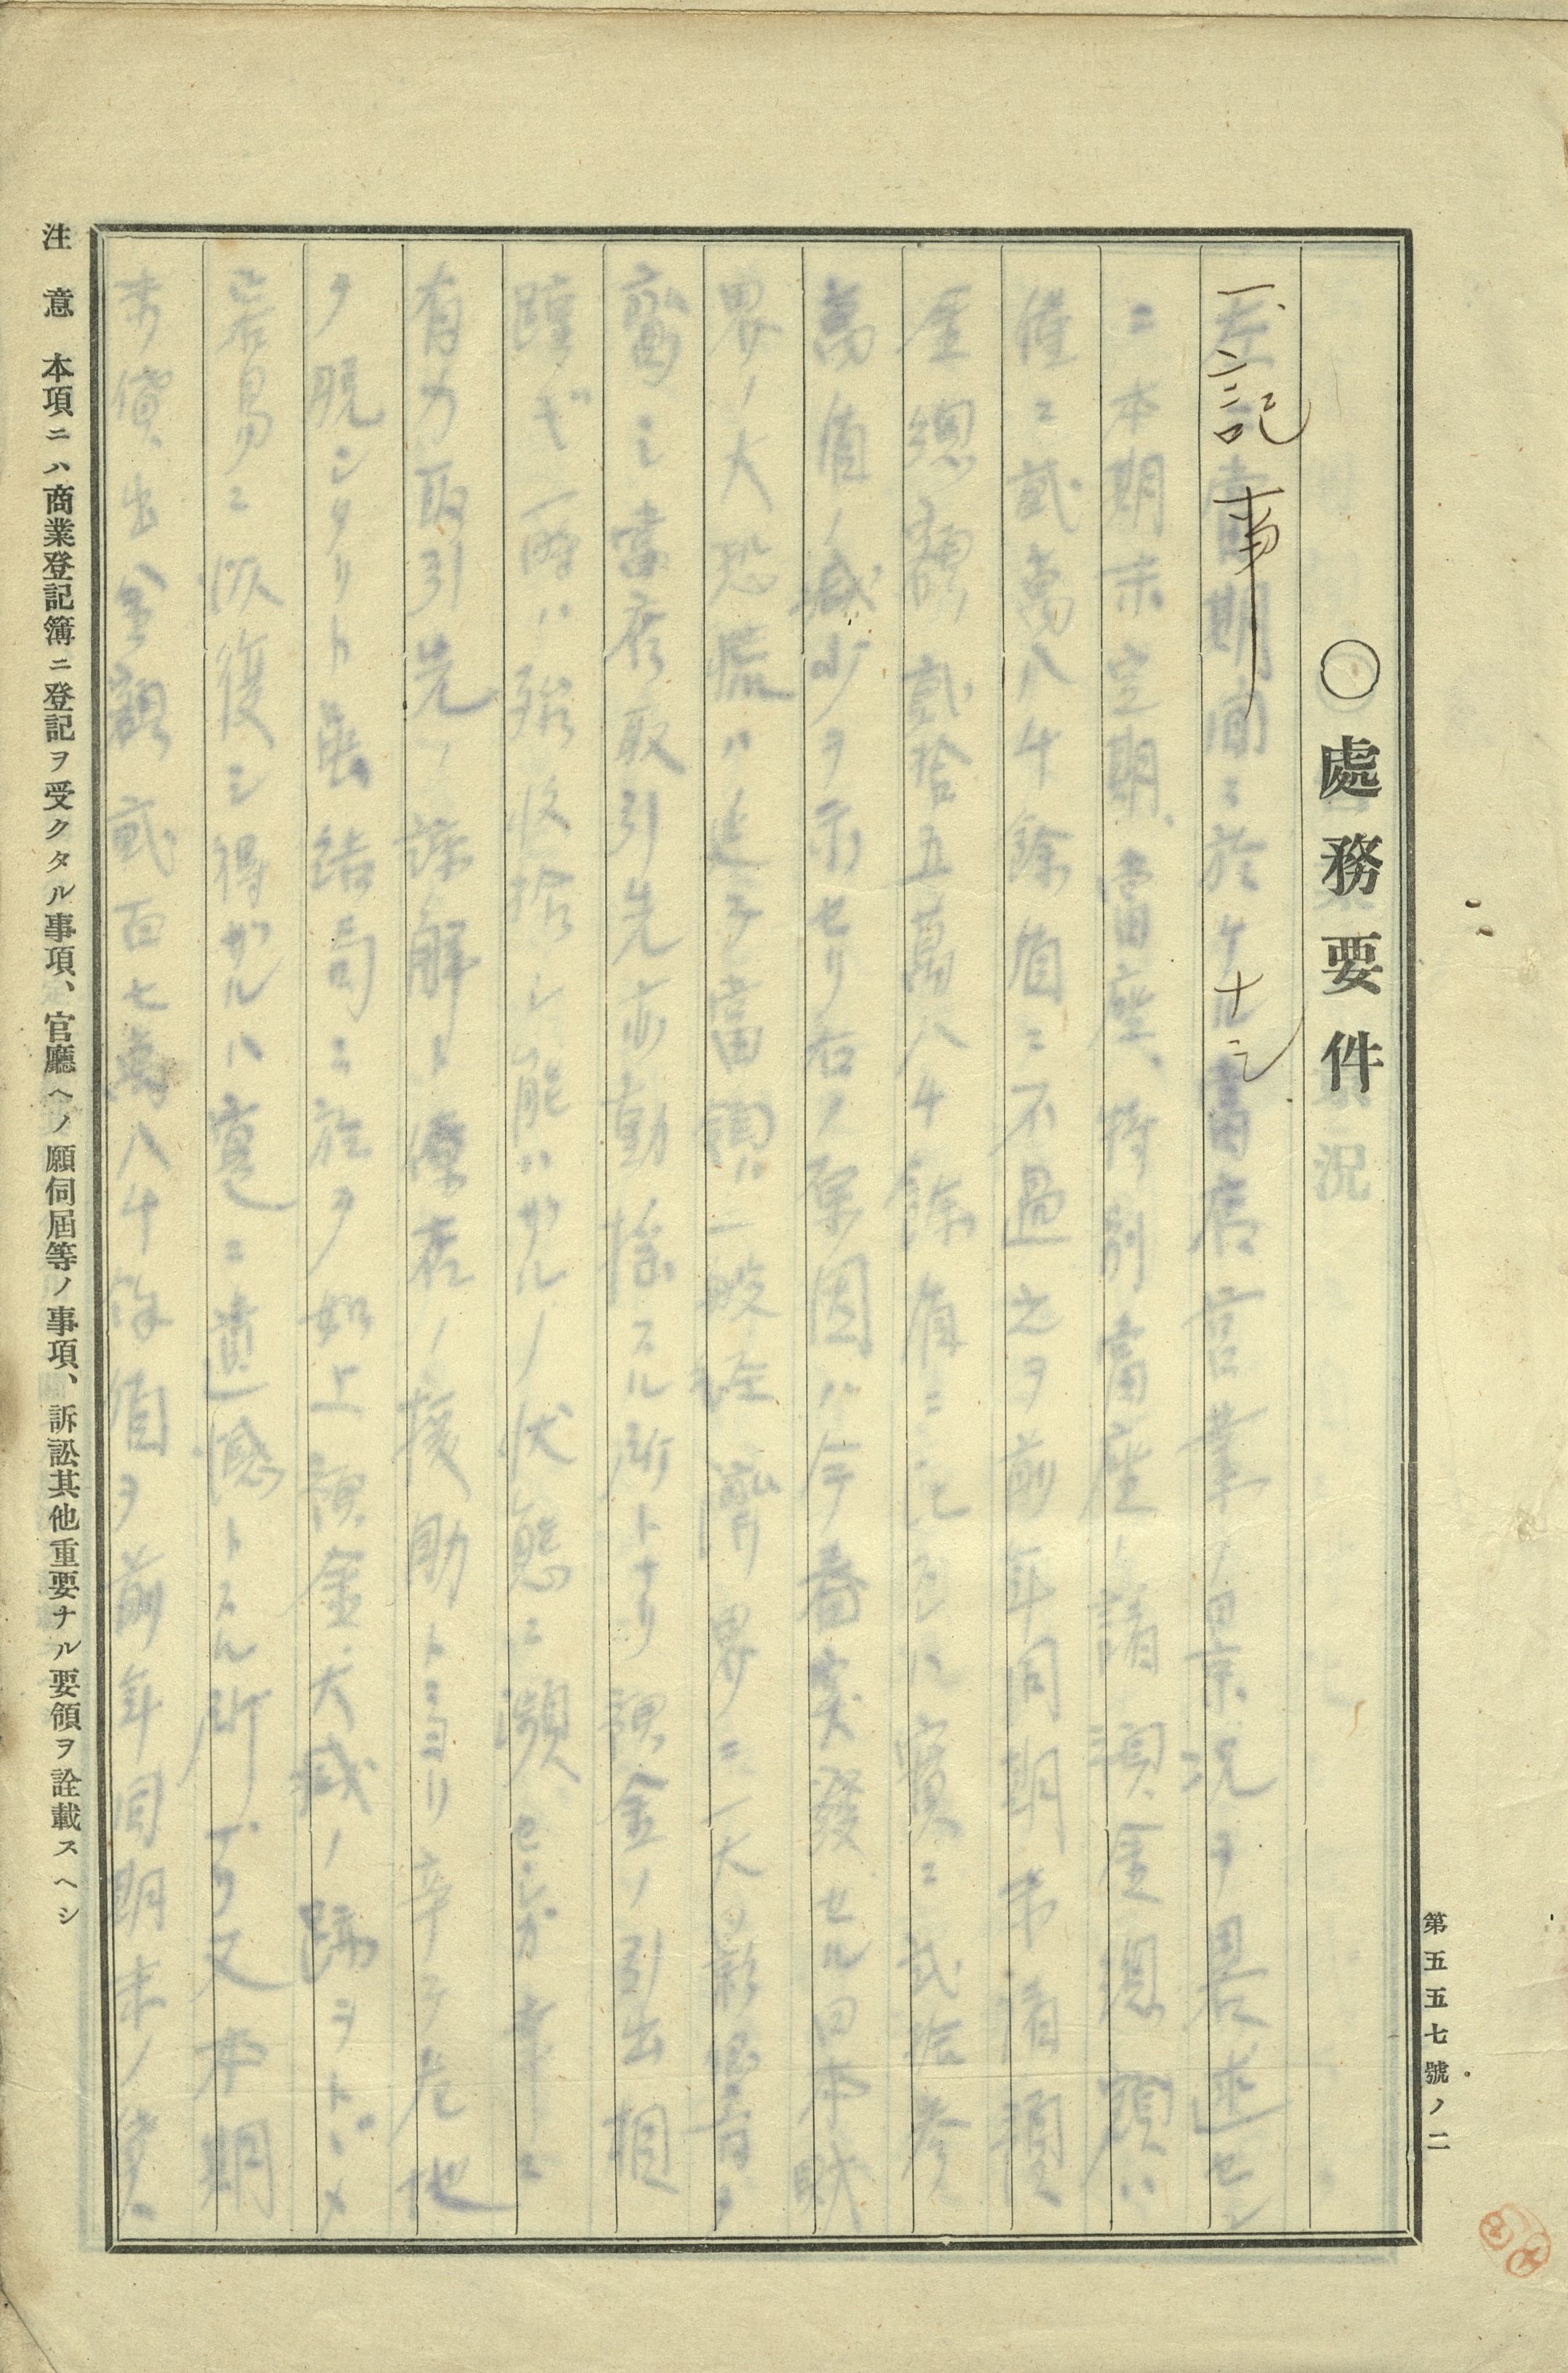 第五五七號ノ二
○處務要件
一、記事 ナシ
左ニ當期間ニ於ケル當店営業ノ景況ヲ畧述セン
ニ本期末定期、當座、特別當座、諸預金總額ハ
僅ニ貳萬八千餘圓ニ不過之ヲ前年同期末諸預
金總額貳拾五萬八千餘圓ニ比スレハ實ニ貳拾参
萬圓ノ減少ヲ示セリ右ノ原因ハ今春突發セル日本財
界ノ大恐慌ハ延テ當領ハ一般経濟界ニ一大影響ヲ
齎シ當店取引先亦動揺スル所トナリ預金ノ引出相
踵ギ一時ハ殆収拾シ能ハザルノ状態ニ瀕セシガ幸ニ
有力取引先ノ諒解ト僚店ノ援助トヨリ辛テ危地
ヲ脱シタリト雖結局ニ於テ如上預金大減ノ跡ヲトドメ
容易ニ恢復シ得ザルハ寔ニ遺憾トスル所ナリ又本期
末貸出金額貳百七萬八千餘圓ヲ前年同期末ノ貸
注意 本項ニハ商業登記簿ニ登記ヲ受クタル事項、官廳ヘノ願伺屆等ノ事項、訴訟其他重要ナル要領ヲ詮載スヘシ